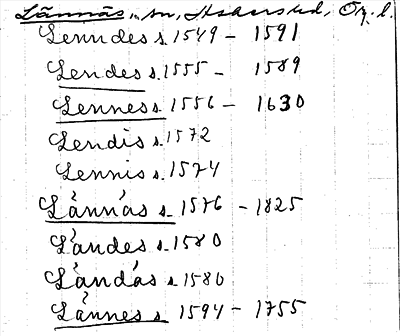 Lännäs, sn, Askersund, Ög. l.
Lenndes s. 1549 - 1591
Lendes s. 1555 - 1589
Lennes s. 1556 - 1630
Lendis s. 1572
Lennis s. 1574
Lännäs s. 1576 - 1825
Ländes s. 1580
Ländäs s. 1580
Lännes s. 1594 - 1755